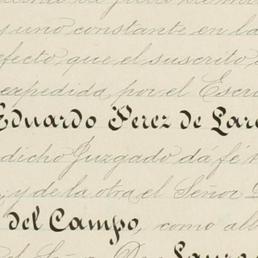 y uno constante en la
efecto, que el suscrito
expedida por el Escri
Eduardo Perez de Lar
dicho Juzgado dá fé
, y de la otra el Señor D
del Campo, como alb